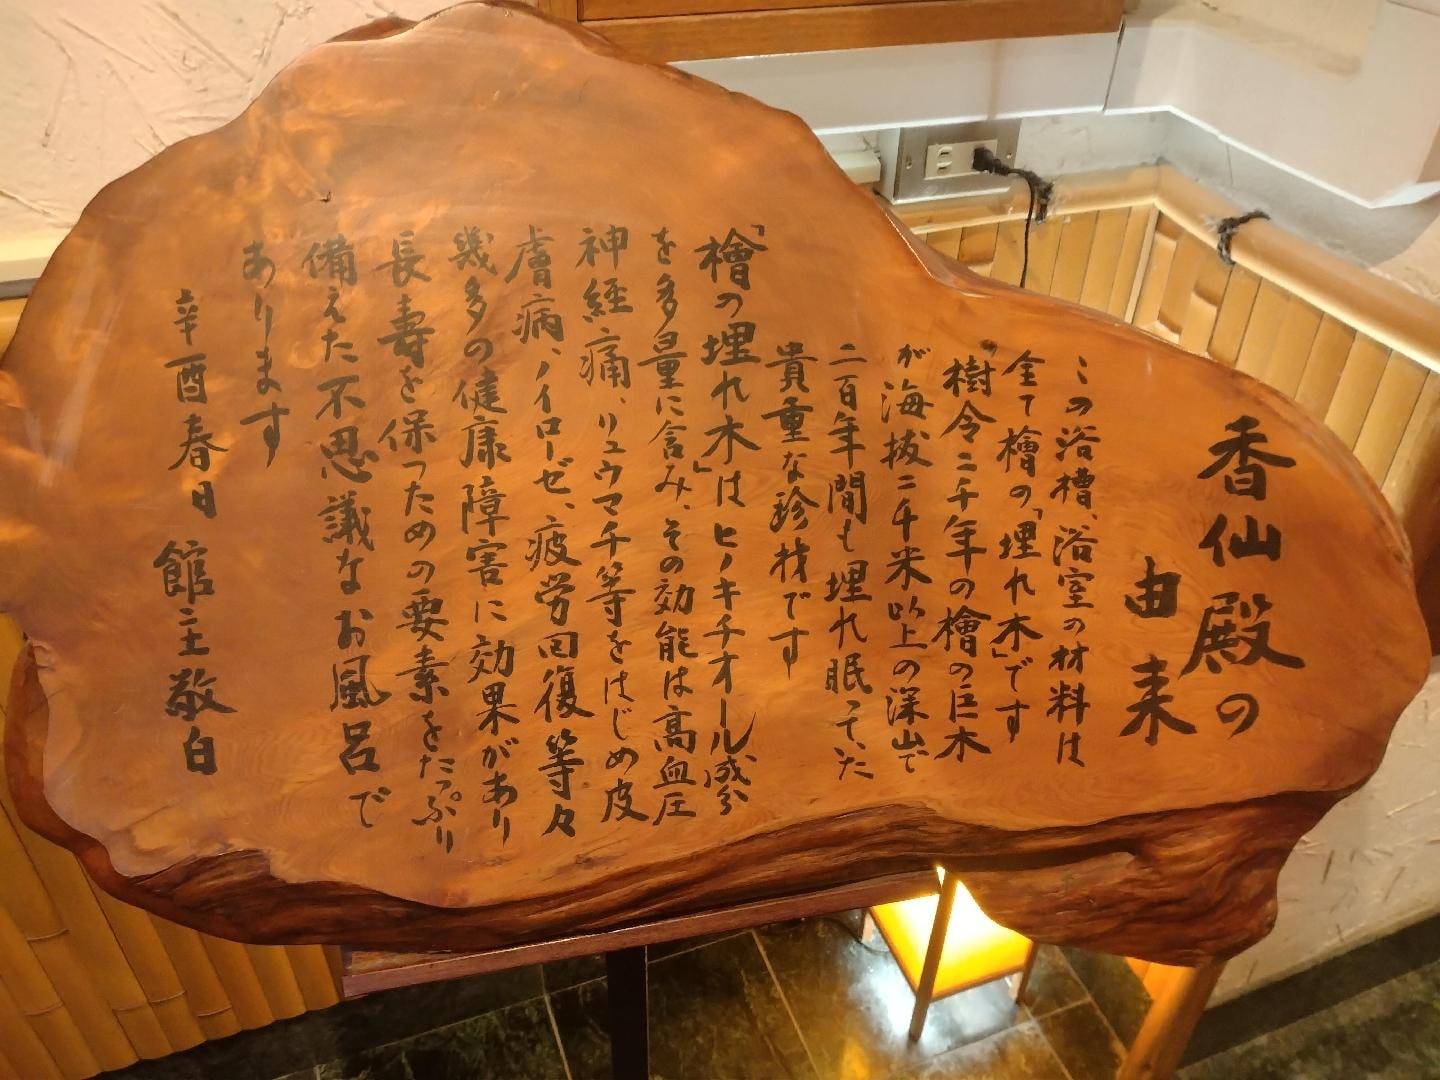 香仙殿の
由来
この浴槽、浴室の材料は
全て檜の「埋れ木」です
「樹令二千年の檜の巨木
が海抜二千米以上の深山で
二百年間も埋れ眠っていた
貴重な珍材です
「檜の埋れ木」はヒノキチオール成分
を多量に含み、その効能は高血圧
神経痛、リュウマチ等をはじめ皮
膚病、ノイローゼ、疲労回復等々
幾多の健康障害に効果があり
長寿を保つための要素をたっぷり
備えた不思議なお風呂で
あります
辛酉春日 館主敬白